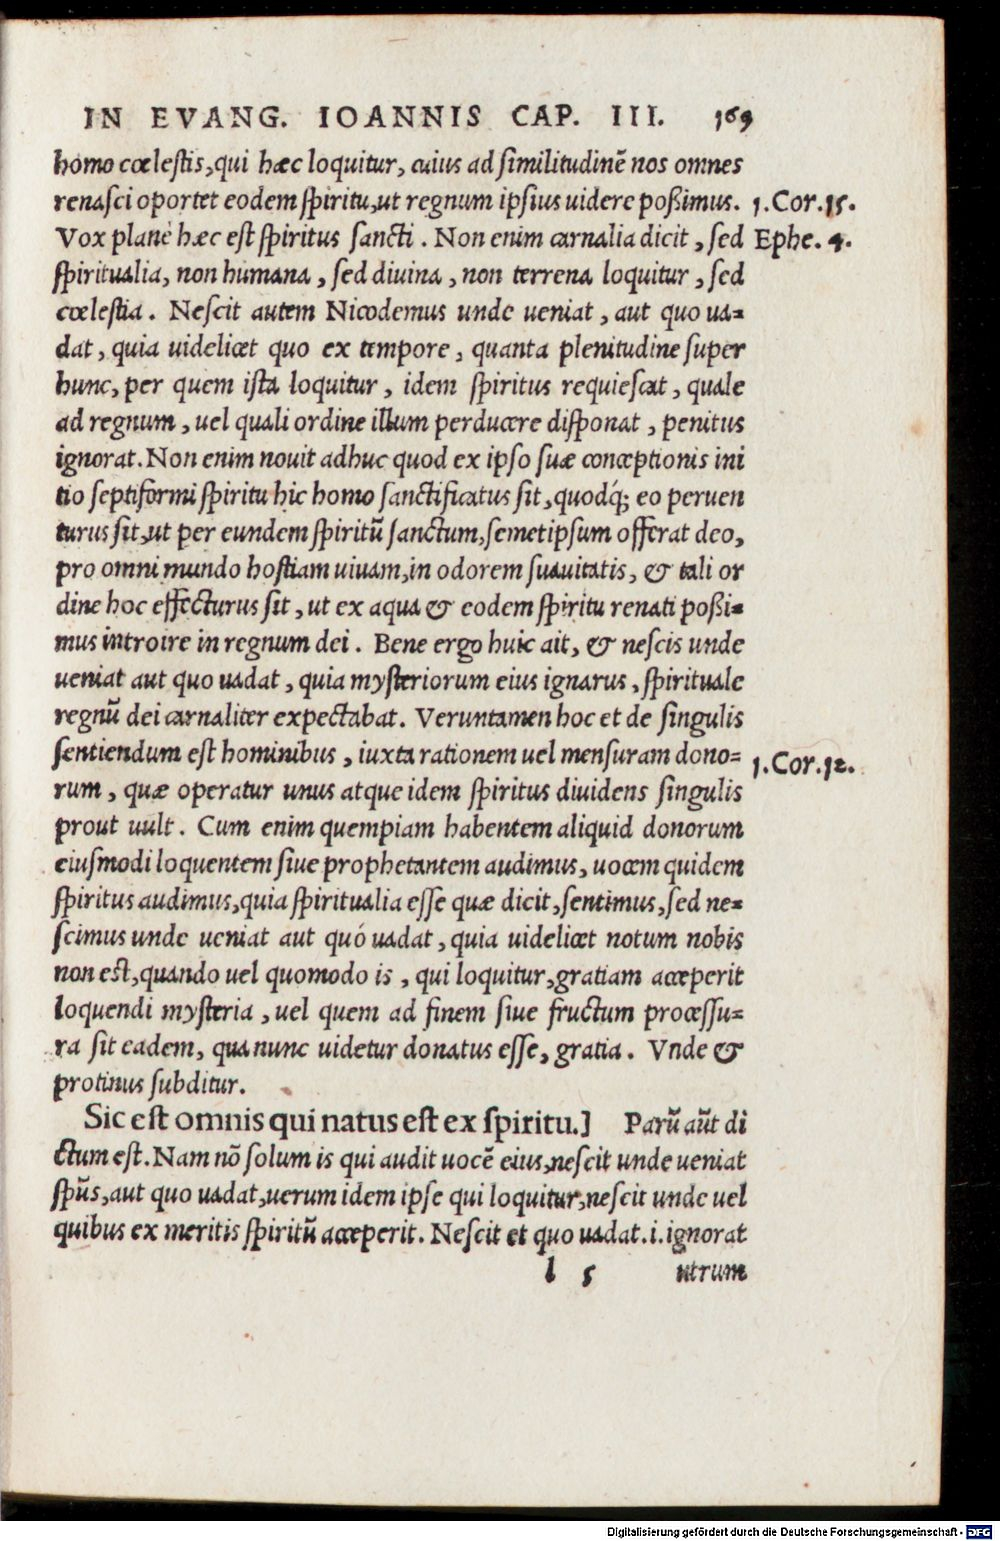 IN EVANG. IOANNIS CAP. III. 169
homo cœlestis, qui hæc loquitur, cuius ad similitudinē nos omnes
renasci oportet eodem spiritu, ut regnum ipsius uidere poßimus. 1. Cor. 15.
Vox planè hæc est spiritus sancti. Non enim carnalia dicit, sed Ephe. 4.
spiritualia, non humana, sed diuina, non terrena loquitur, sed
cœlestia. Nescit autem Nicodemus unde ueniat, aut quo ua-
dat, quia uidelicet quo ex tempore, quanta plenitudine super
hunc, per quem ista loquitur, idem spiritus requiescat, quale
ad regnum, uel quali ordine illum perducere disponat, penitus
ignorat. Non enim nouit adhuc quod ex ipso suæ conceptionis ini
tio septiformi spiritu hic homo sanctificatus sit, quodq́; eo peruen
turus sit, ut per eundem spiritū sanctum, semetipsum offerat deo,
pro omni mundo hostiam uiuam, in odorem suauitatis, & tali or
dine hoc effecturus sit, ut ex aqua & eodem spiritu renati poßi-
mus introire in regnum dei. Bene ergo huic ait, & nescis unde
ueniat aut quo uadat, quia mysteriorum eius ignarus, spirituale
regnū dei carnaliter expectabat. Veruntamen hoc et de singulis
sentiendum est hominibus, iuxta rationem uel mensuram dono- 1. Cor. 12.
rum, quæ operatur unus atque idem spiritus diuidens singulis
prout uult. Cum enim quempiam habentem aliquid donorum
eiusmodi loquentem siue prophetantem audimus, uocem quidem
spiritus audimus, quia spiritualia esse quæ dicit, sentimus, sed ne-
scimus unde ueniat aut quó uadat, quia uidelicet notum nobis
non est, quando uel quomodo is, qui loquitur, gratiam acceperit
loquendi mysteria, uel quem ad finem siue fructum processu-
ra sit eadem, qua nunc uidetur donatus esse, gratia. Vnde &
protinus subditur.
Sic est omnis qui natus est ex spiritu.] Parū aūt di
ctum est. Nam nō solum is qui audit uocē eius, nescit unde ueniat
spūs, aut quo uadat, uerum idem ipse qui loquitur, nescit unde uel
quibus ex meritis spiritū acceperit. Nescit et quo uadat. i. ignorat
l 5 utrum
Digitalisierung gefördert durch die Deutsche Forschungsgemeinschaft - DFG